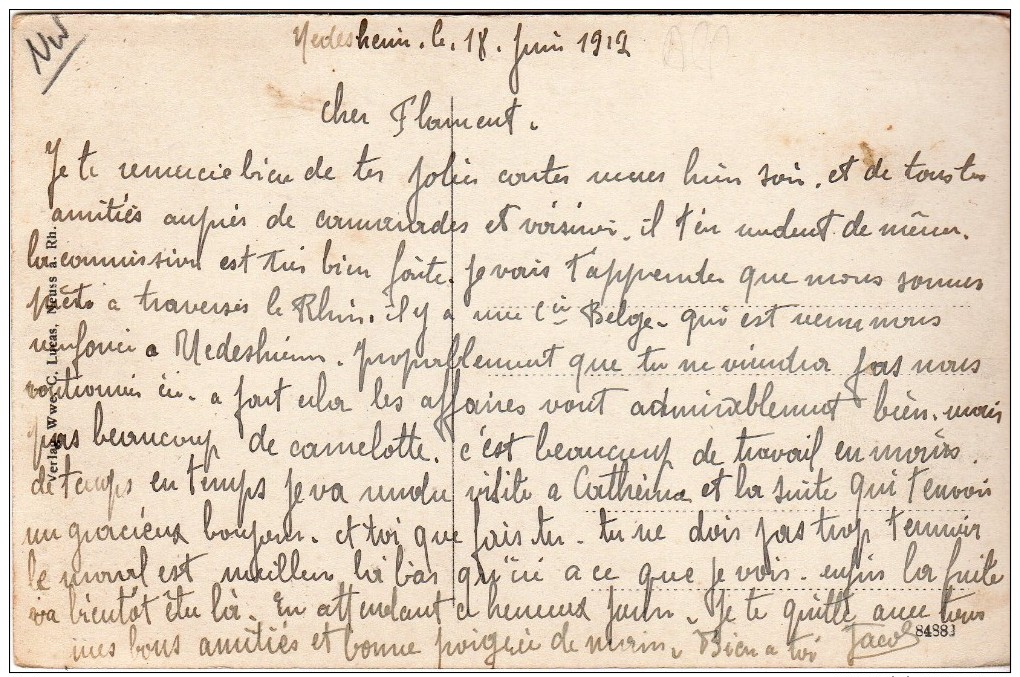 le. 18. Juin 1919
Cher Flament.
Je te remercie bien de tes jolies cartes reçues hier soir. et de toutes tes
amitiés auprès de camarades et voisines. il t'en rendent de même.
la commission est très bien faite. je vais t'apprendre que nous sommes
prêts a traverser le Rhin. il y a une Cie Belge. qui est venu nous
renforcé a . propablement que tu ne viendra pas nous
ici. a part cela les affaires vont admirablement bien. mais
pas beaucoup de camelotte. c'est beaucoup de travail en moins.
de temps en temps je va rendre visite a Cathérina et la suite qui t'envois
un gracieux bonjour. et toi que fais-tu. tu ne dois pas trop t'ennuier
le moral est meilleur là bas qu'ici a ce que je vois. enfin la fuite
va bientôt être là. En attendant ce heureux jour. Je te quitte avec tous
mes bons amitiés et bonne poignée de main. Bien a toi Jacob
Verlag: Wwe. C. Lucas, Neuss a. Rh.
84881